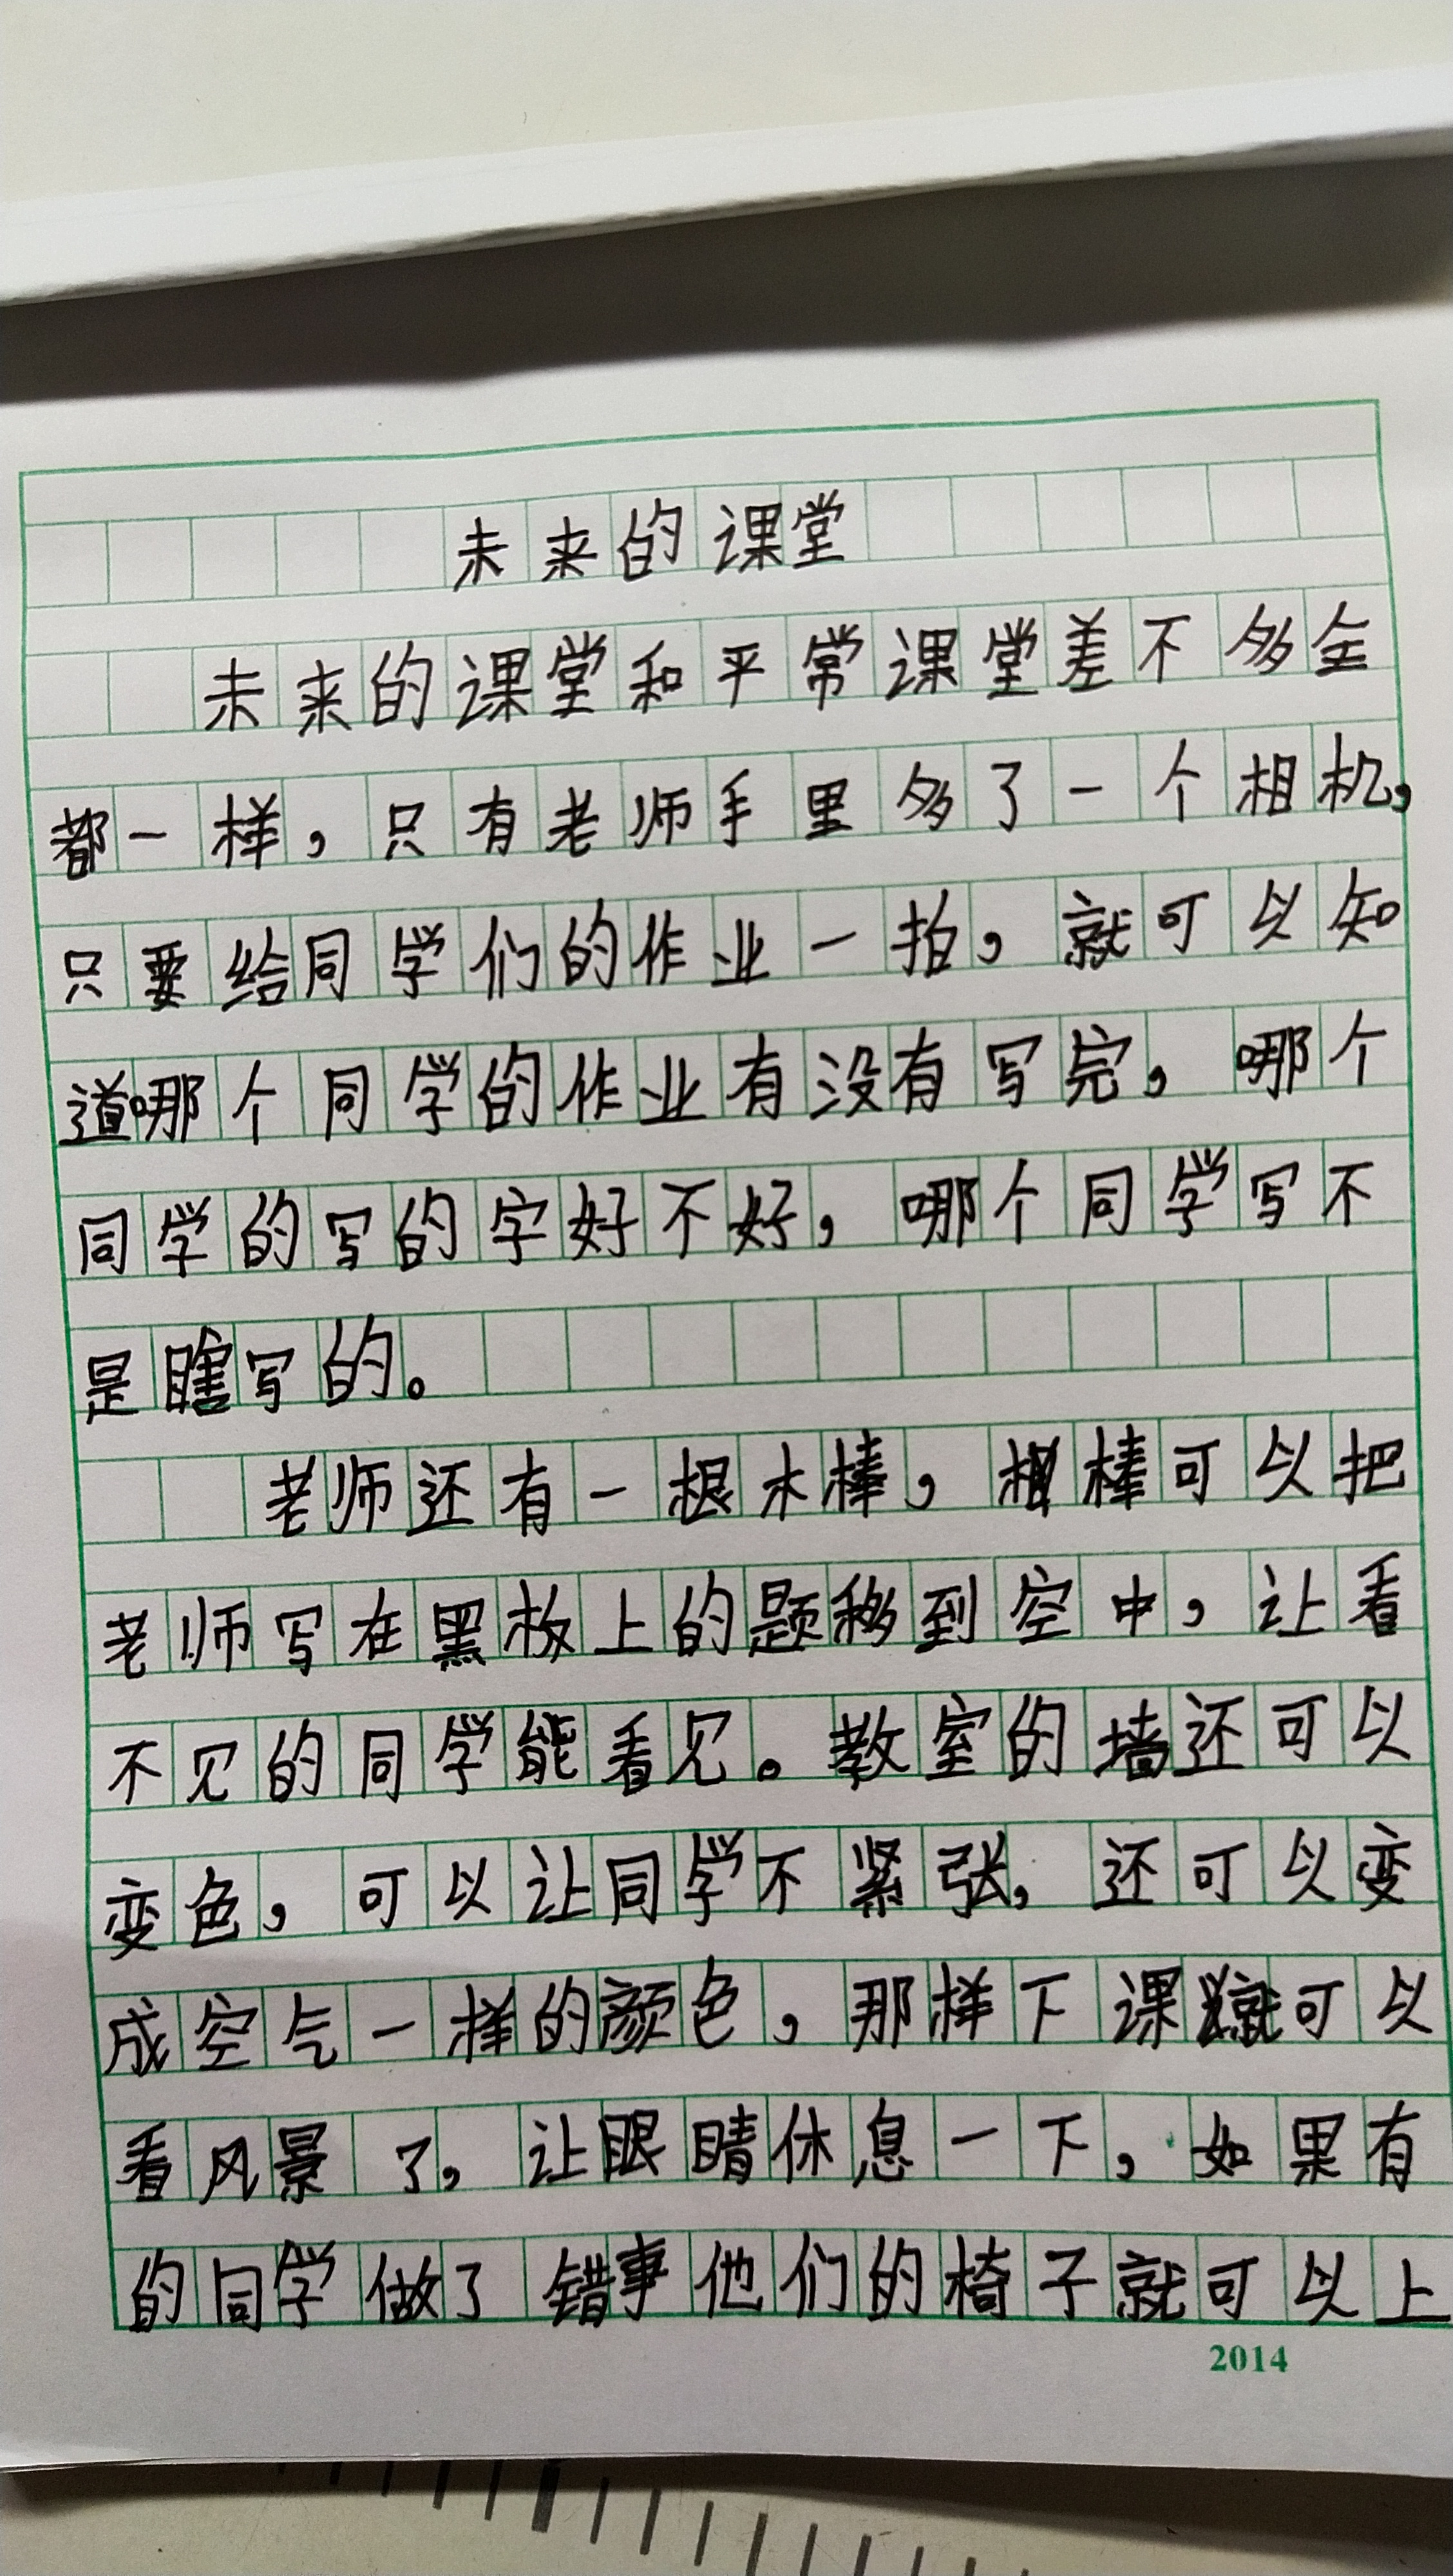 未来的课堂
未来的课堂和平常课堂差不多全
都一样，只有老师手里多了一个相机，
只要给同学们的作业一拍，就可以知
道哪个同学的作业有没有写完，哪个
同学的写的字好不好，哪个同学写不
是瞎写的。
老师还有一根木棒，棒可以把
老师写在黑板上的题移到空中，让看
不见的同学能看见。教室的墙还可以
变色，可以让同学不紧张，还可以变
成空气一样的颜色，那样下课就可以
看风景了，让眼睛休息一下，如果有
的同学做了错事他们的椅子就可以上
2014